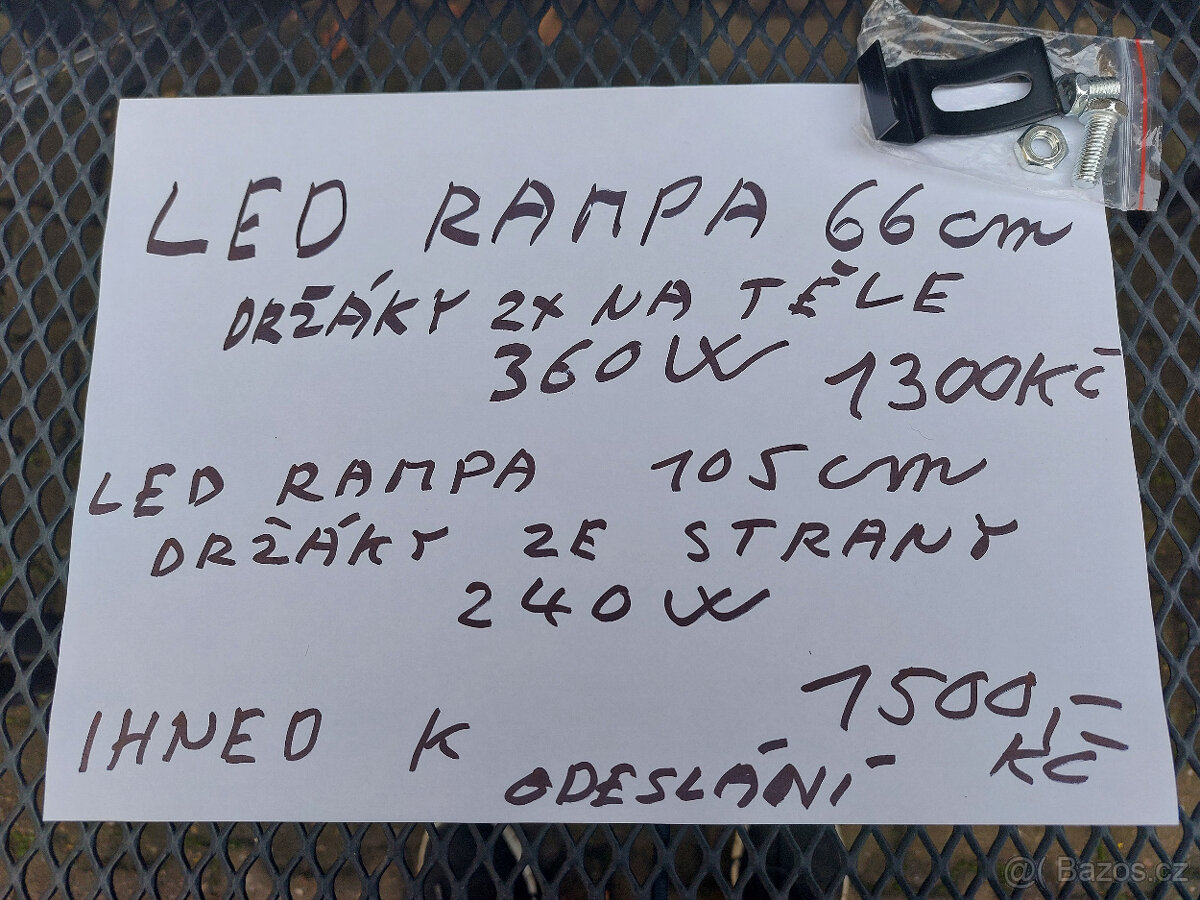 LED RAMPA 66cm
DRŽÁKY 2x NA TĚLE
360W 1300Kč
LED RAMPA 105cm
DRŽÁKY ZE STRANY
240W
1500,=
IHNED K ODESLÁNÍ Kč
@ Bazos.cz